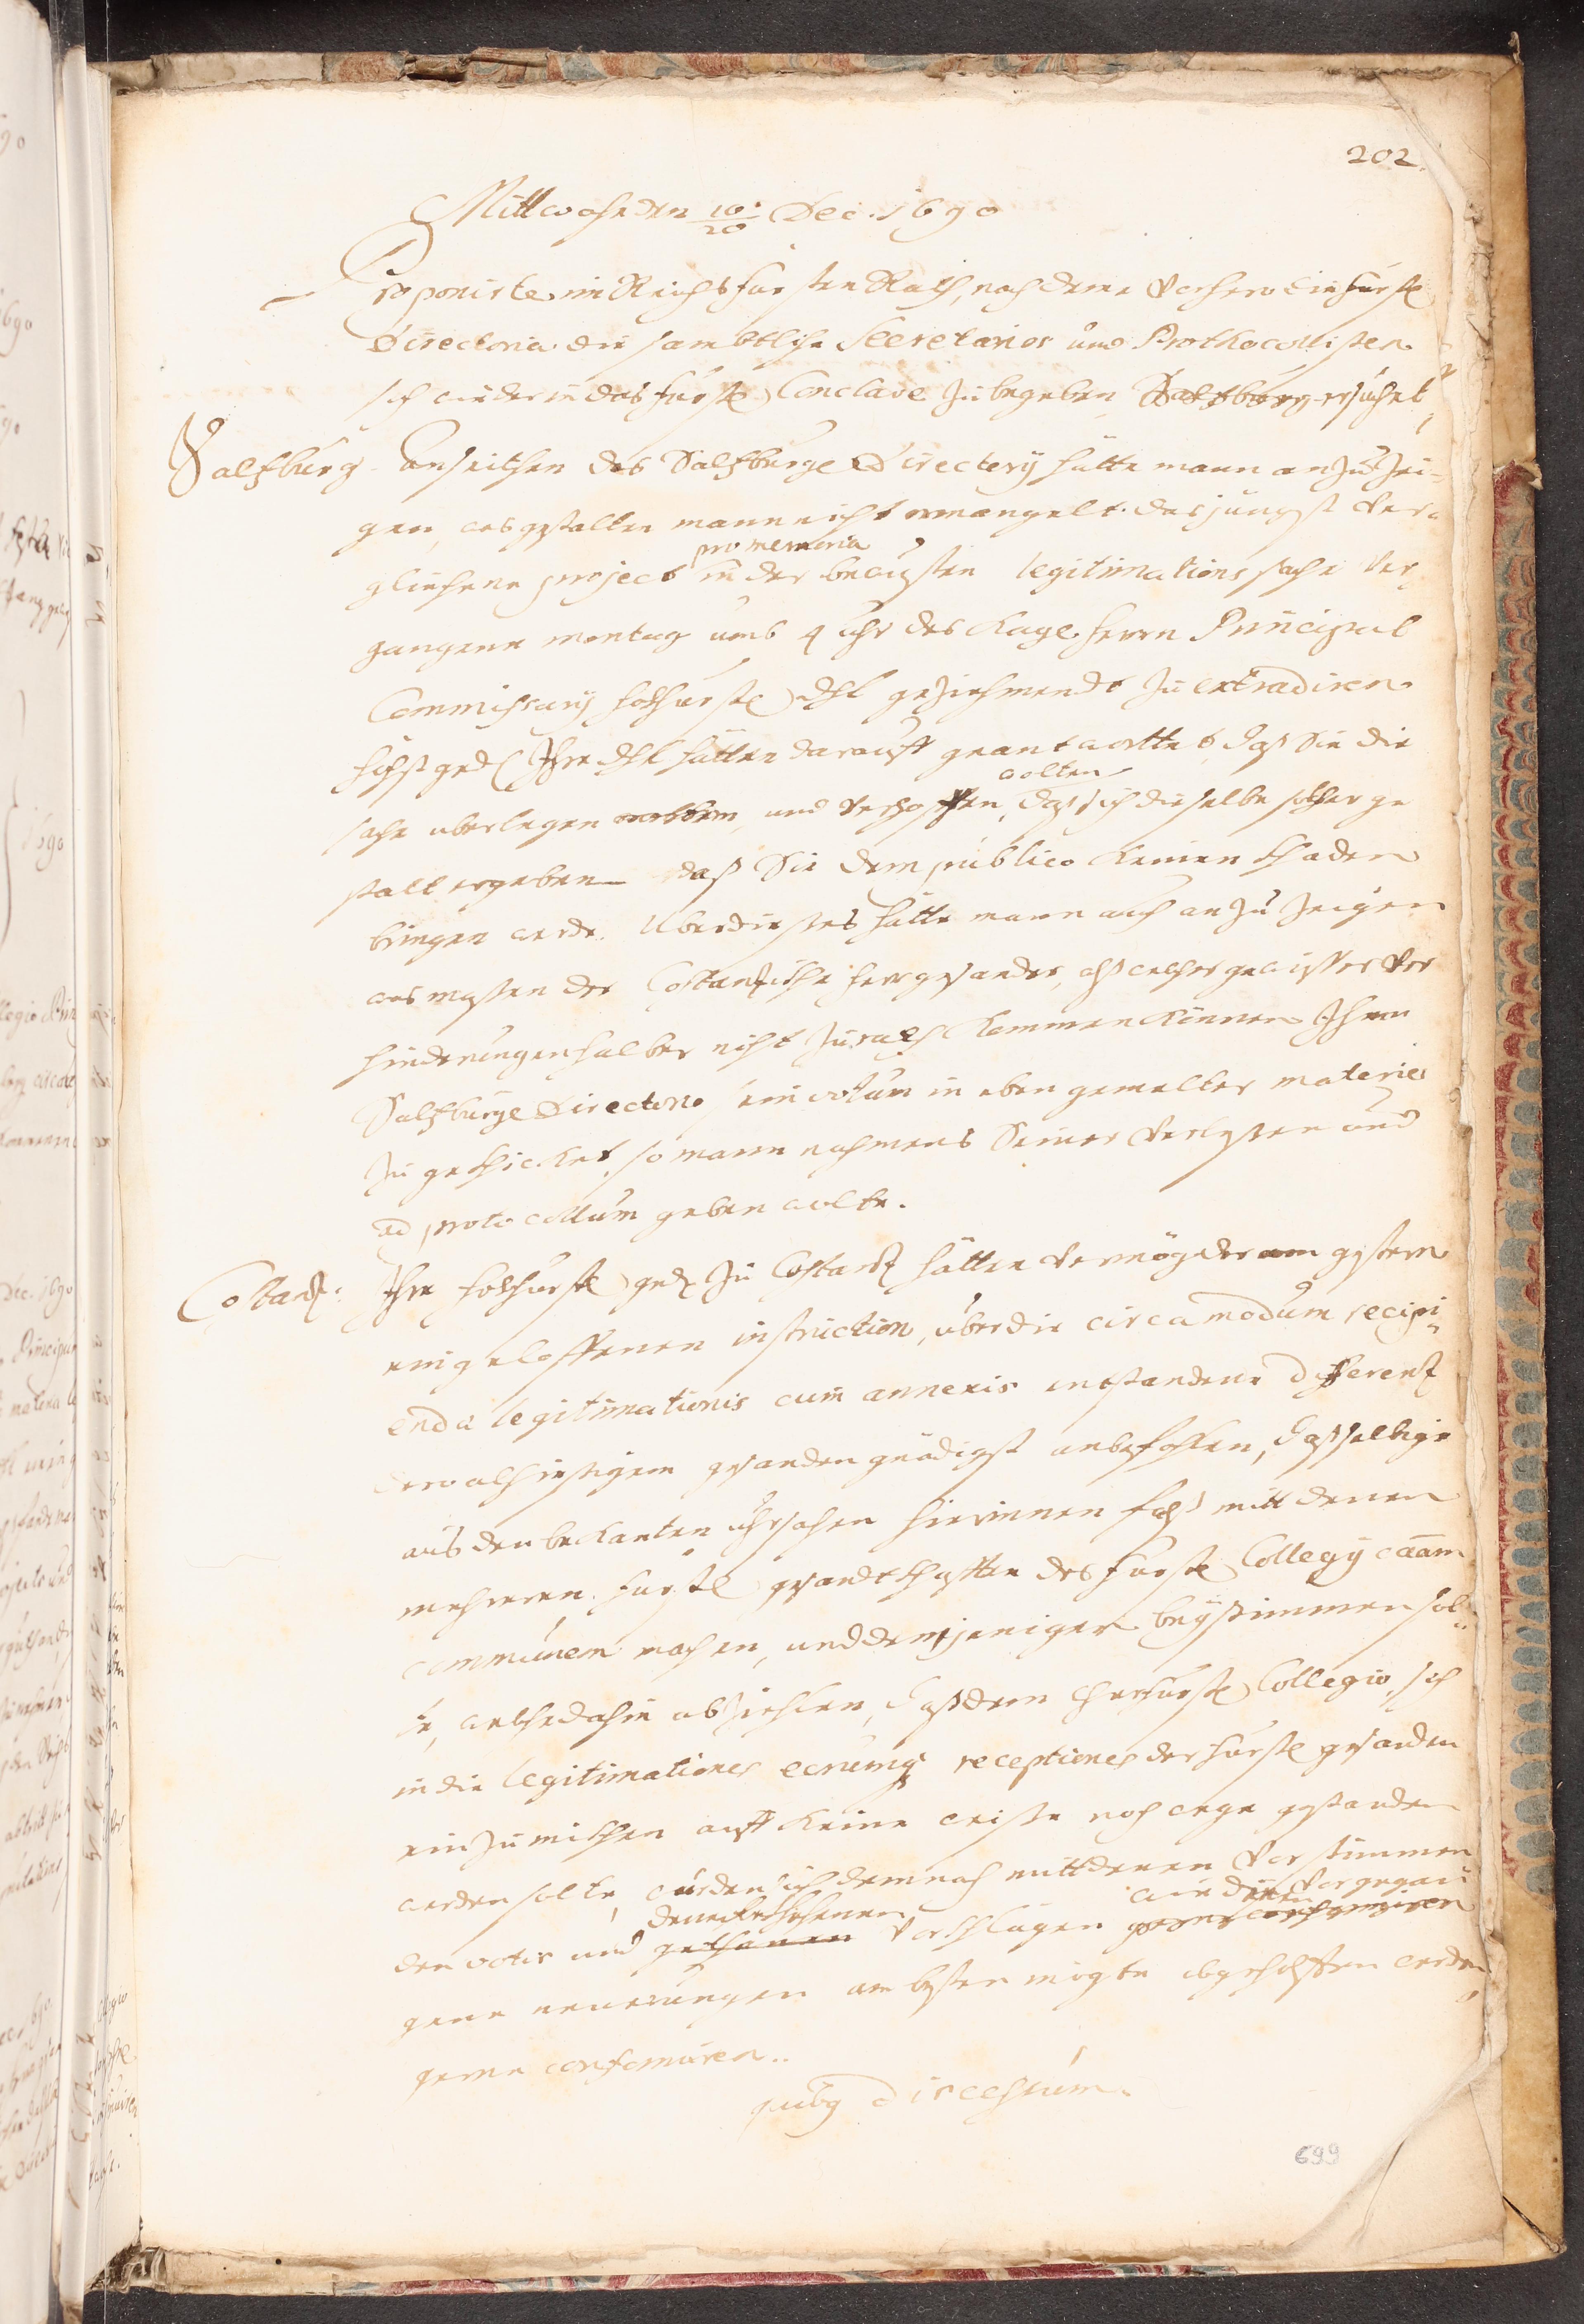 202.
Mittwoch den 10./20 Dec. 1690
Proponirte im Reichs fürsten Rath, nach deme vorhero die fürstl
Directoria die sambtliche Secretarios und Prothocollisten
sich wieder in das fürstl Conclave zu begeben Saltzburg ersuchet,
Saltzburg Anseithen des Saltzburg Directorij hätte mann anzuzei-
gen, was gestalten mann nicht ermangelt das jüngst ver-
pro memoria
glichene project in der bewusten legitimations sache ver-
gangenen montag umb 4 Uhr des Kays. herrn Principal
Commissarij hochfürstl dhl geziehmendt zu extradiren
höchstged Ihre dhl hätten darauff geantworttet, daß Sie die
wolten
sache uberlegen wolten, und verhoffen, daß sich dieselbe solcher ge
stalt ergeben daß Sie dem publico keinen schaden
bringen werde. Uber dieses hätte mann auch anzuzeigen
was massen der Costantzische herr gesander, alß welcher gewisser ver
hinderungen halber nicht zu rath kommen können Ihrem
Saltzburg Directorio sein votum in eben gemelter materie
zu geschicket, so mann nahmens Seiner verlesen und
ad protocollum geben wolte.
Costantz: Ihre hochfürstl gnd zu Costantz hätten vermög der am gestern
eingeloffenen instruction, über die circa modum recipi-
enda legitimationis cum annexis entstandene differentz
dero alhiesigem gesanden gnädigst anbefohlen, daß selbige
aus den bekanten uhrsachen hierinnen falß mitt denen
mehreren fürstl gesandtschafften des fürstl Collegij causam
communem machen, und demjenigen beystimmen sol-
le, welche dahin abziehlen, daß dem Churfürstl Collegio, sich
in die legitimationes earumq receptiones der fürstl gesanden
einzumischen auff keine weise noch wege gestanden
werden solte, würden sich demnach mitt denen vorstimmen
denen beschehenen wie denen vorgegan
den votis und gethanen vorschlägen gerne conformiren
gene neuerungen am besten mögte abgeholffen werden,
gerne conformiren..
quibq discessum.
699